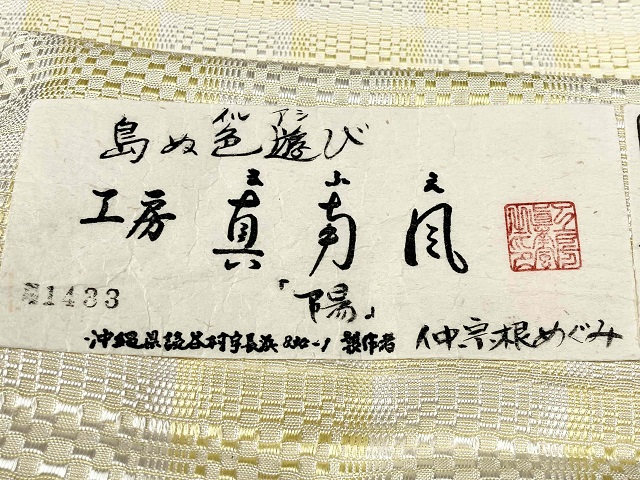 イル アシ
島ぬ色遊び
工房 真南風
「陽」
1433
沖縄県読谷村字長浜 製作者 仲宗根めぐみ